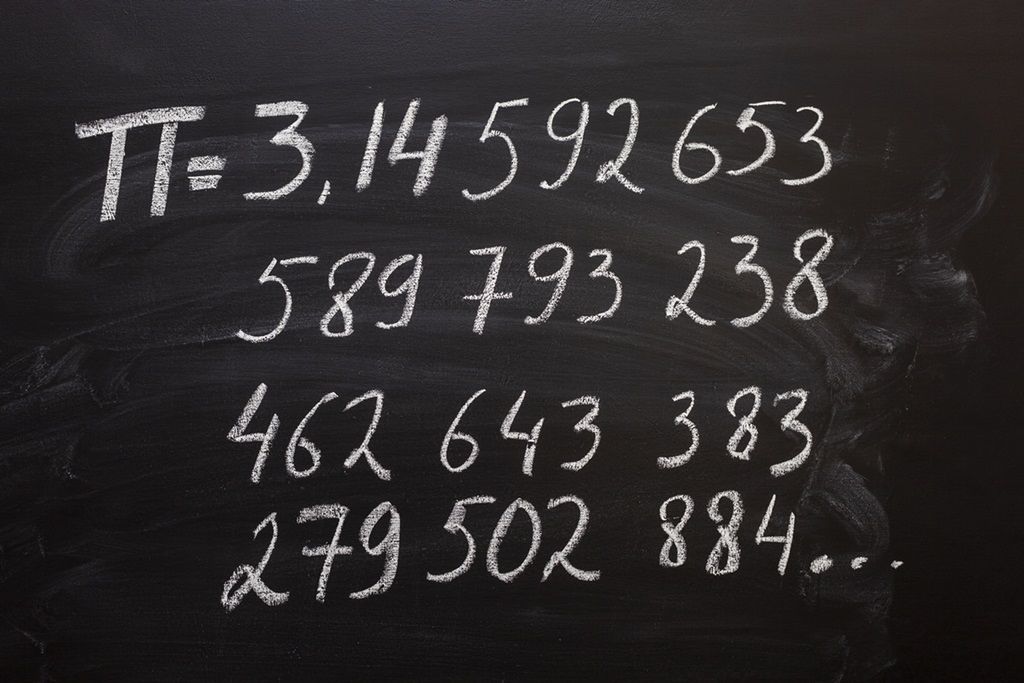 π = 3,14 592 653
589 793 238
462 643 383
279 502 884...